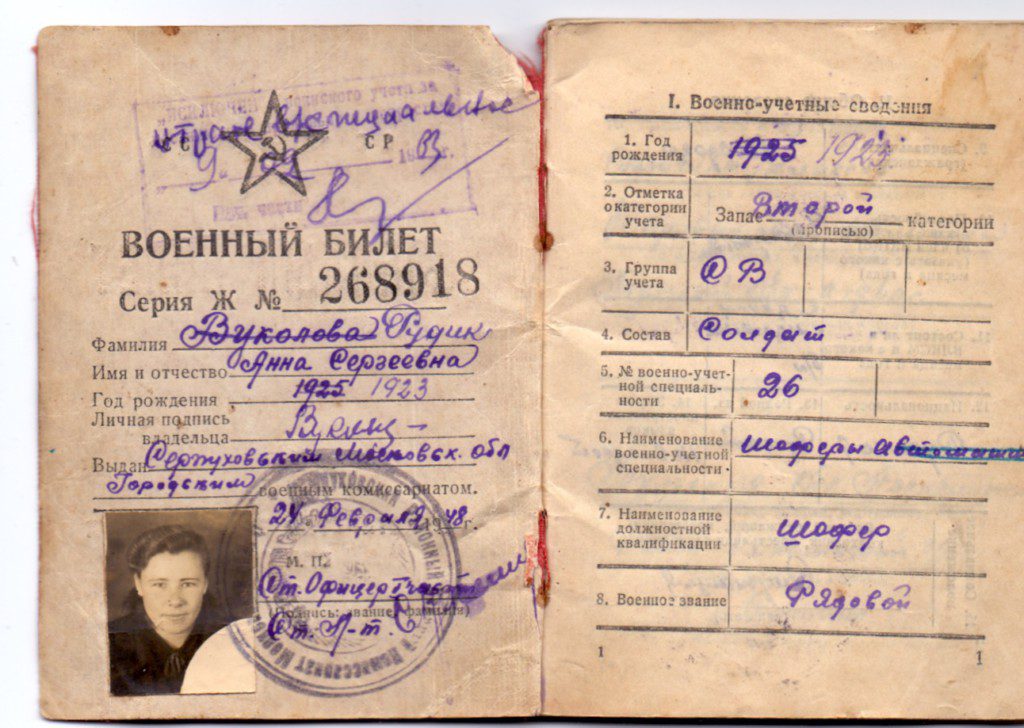 Исключен с воинского учета за
СС СР
ВОЕННЫЙ БИЛЕТ
Серия Ж № 268918
Фамилия Вуколова Рудик
Имя и отчество Анна Сергеевна
Год рождения 1925 1923
Личная подпись
владельца
Выдан Серпуховским Московск. обл
Городским военным комиссариатом.
24 февраля 1948 г.
М. П.
Ст. Офицер
(Подпись, звание, фамилия)
Ст. Л-т.
I. Военно-учетные сведения
1. Год
рождения 1925 1923
2. Отметка
о категории
учета
Запас Второй категории
(прописью)
3. Группа
учета СВ
4. Состав Солдат
5. № военно-учет-
ной специаль-
ности 26
6. Наименование
военно-учетной
специальности Шоферы
7. Наименование
должностной
квалификации Шофер
8. Военное звание Рядовой
1 1